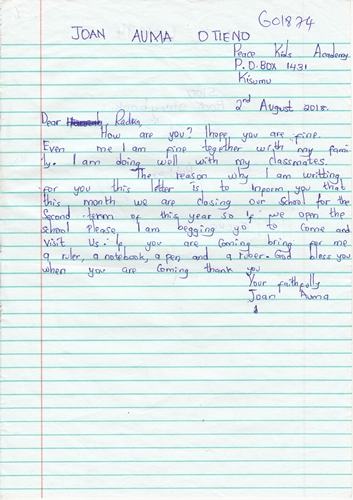 GO1874
JOAN AUMA OTIENO
Peace Kids Academy
P.O.BOX 1431
Kisumu
2nd August 2018.
Dear Radka,
How are you? I hope you are fine.
Even me I am fine together with my fami
ly. I am doing well with my classmates.
The reason why I am writting
for you this letter is to inform you that
this month we are closing our school for the
Second term of this year so if we open the
school Please I am begging yo to come and
visit Us. If you are coming bring for me
a ruler, a notebook, a pen, and a ruber. God bless you
when you are coming thank you
Your faithfully
Joan Auma